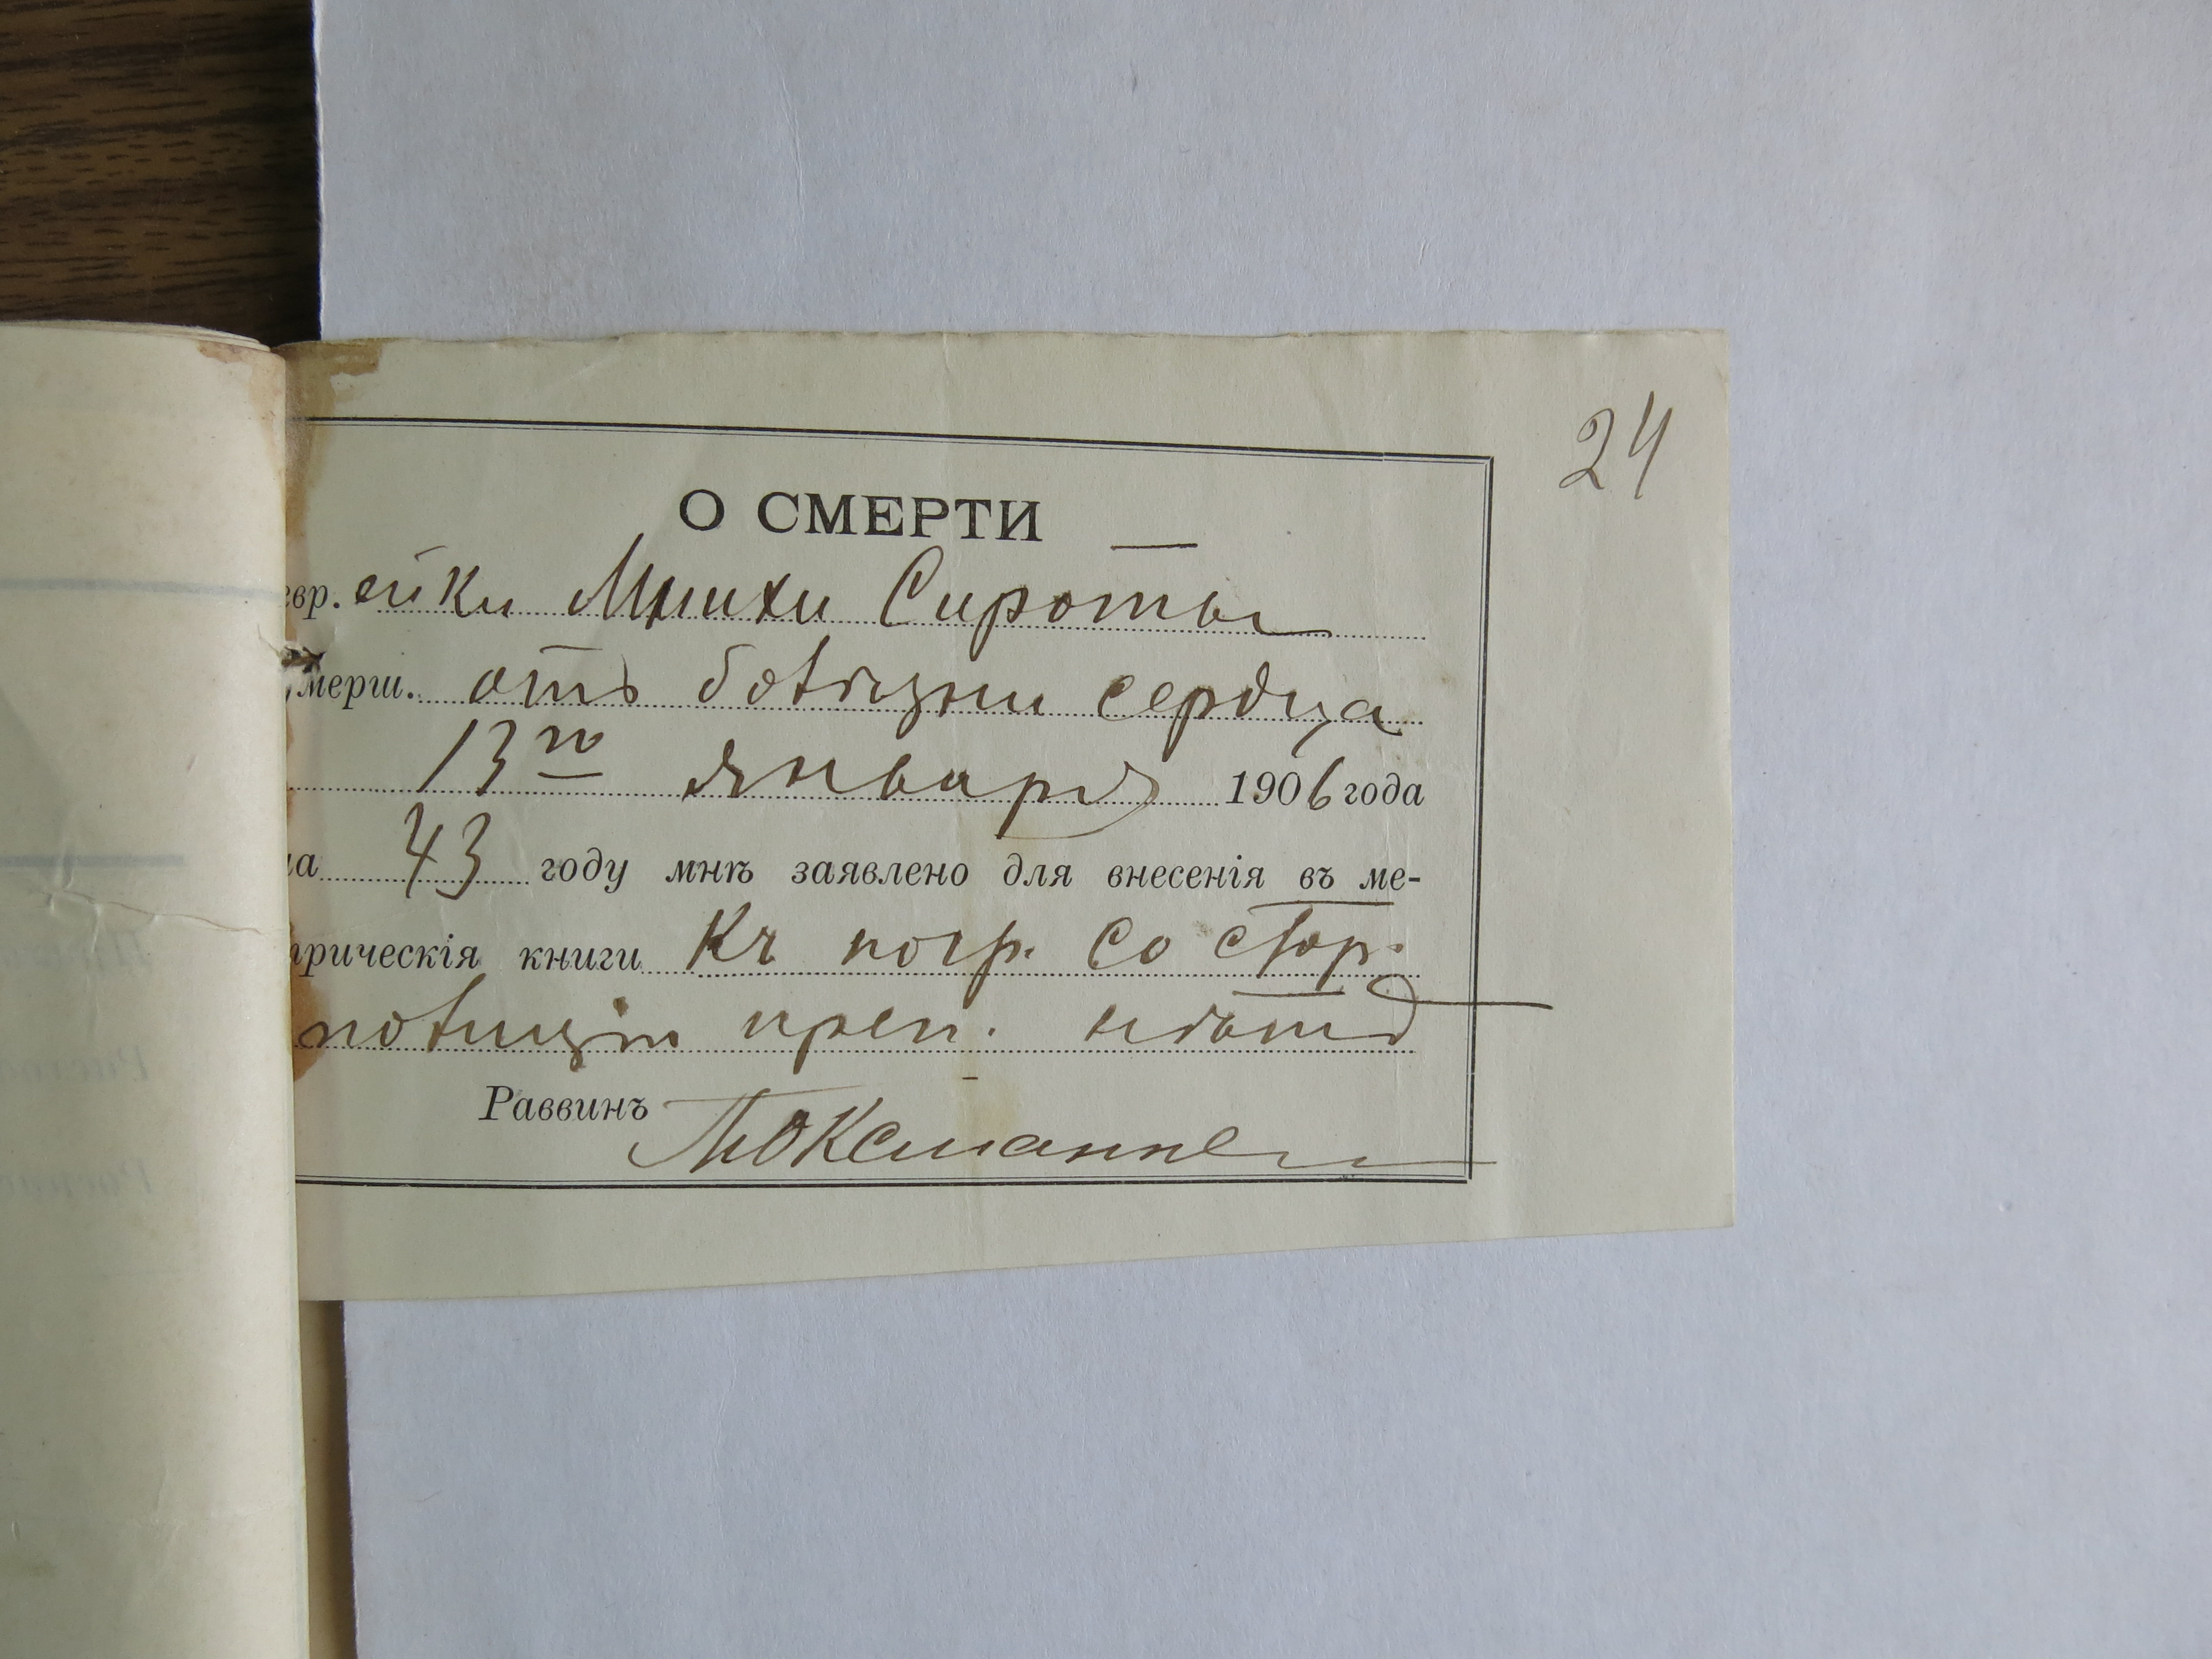 24
О СМЕРТИ
евр. ейки Мнихи Сироты
умерш. отъ болѣзни сердца
13го января 1906 года
на 43 году мнѣ заявлено для внесенія въ ме-
трическія книги Къ погр. со стор.
полиціи преп. нѣтъ
Раввинъ